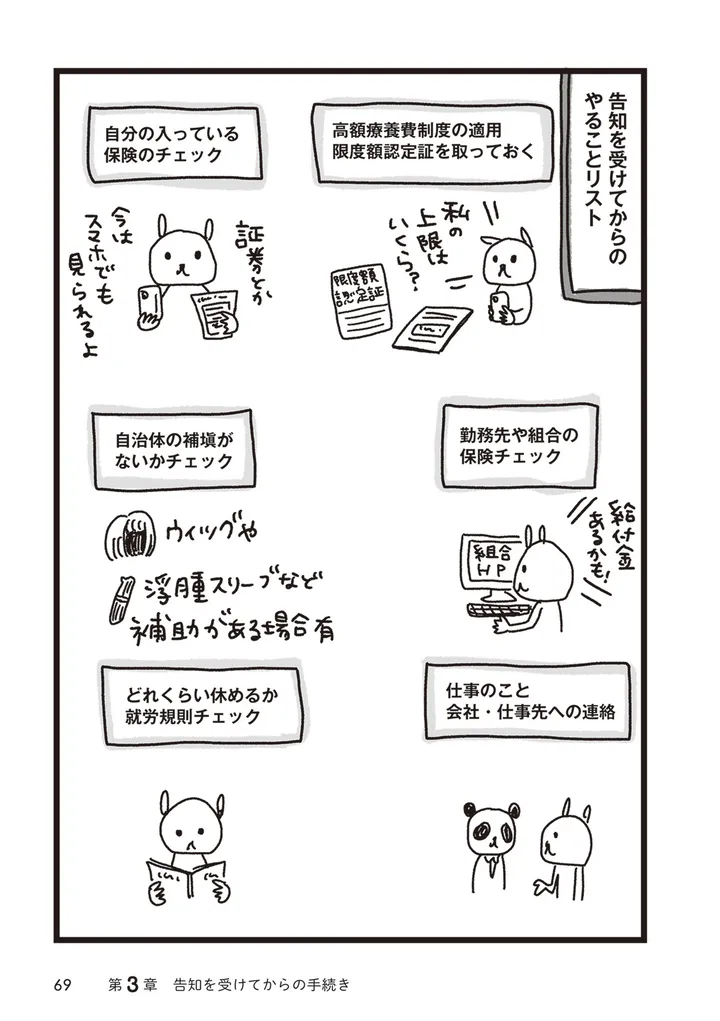 告知を受けてからの
やることリスト
高額療養費制度の適用
限度額認定証を取っておく
私の
上限は
いくら?
限度額
認定証
自分の入っている
保険のチェック
証券とか
今は
スマホでも
見られるよ
勤務先や組合の
保険チェック
給付金
あるかも!
組合
HP
自治体の補塡が
ないかチェック
ウィッグや
浮腫スリーブなど
補助がある場合有
仕事のこと
会社・仕事先への連絡
どれくらい休めるか
就労規則チェック
69 第3章 告知を受けてからの手続き